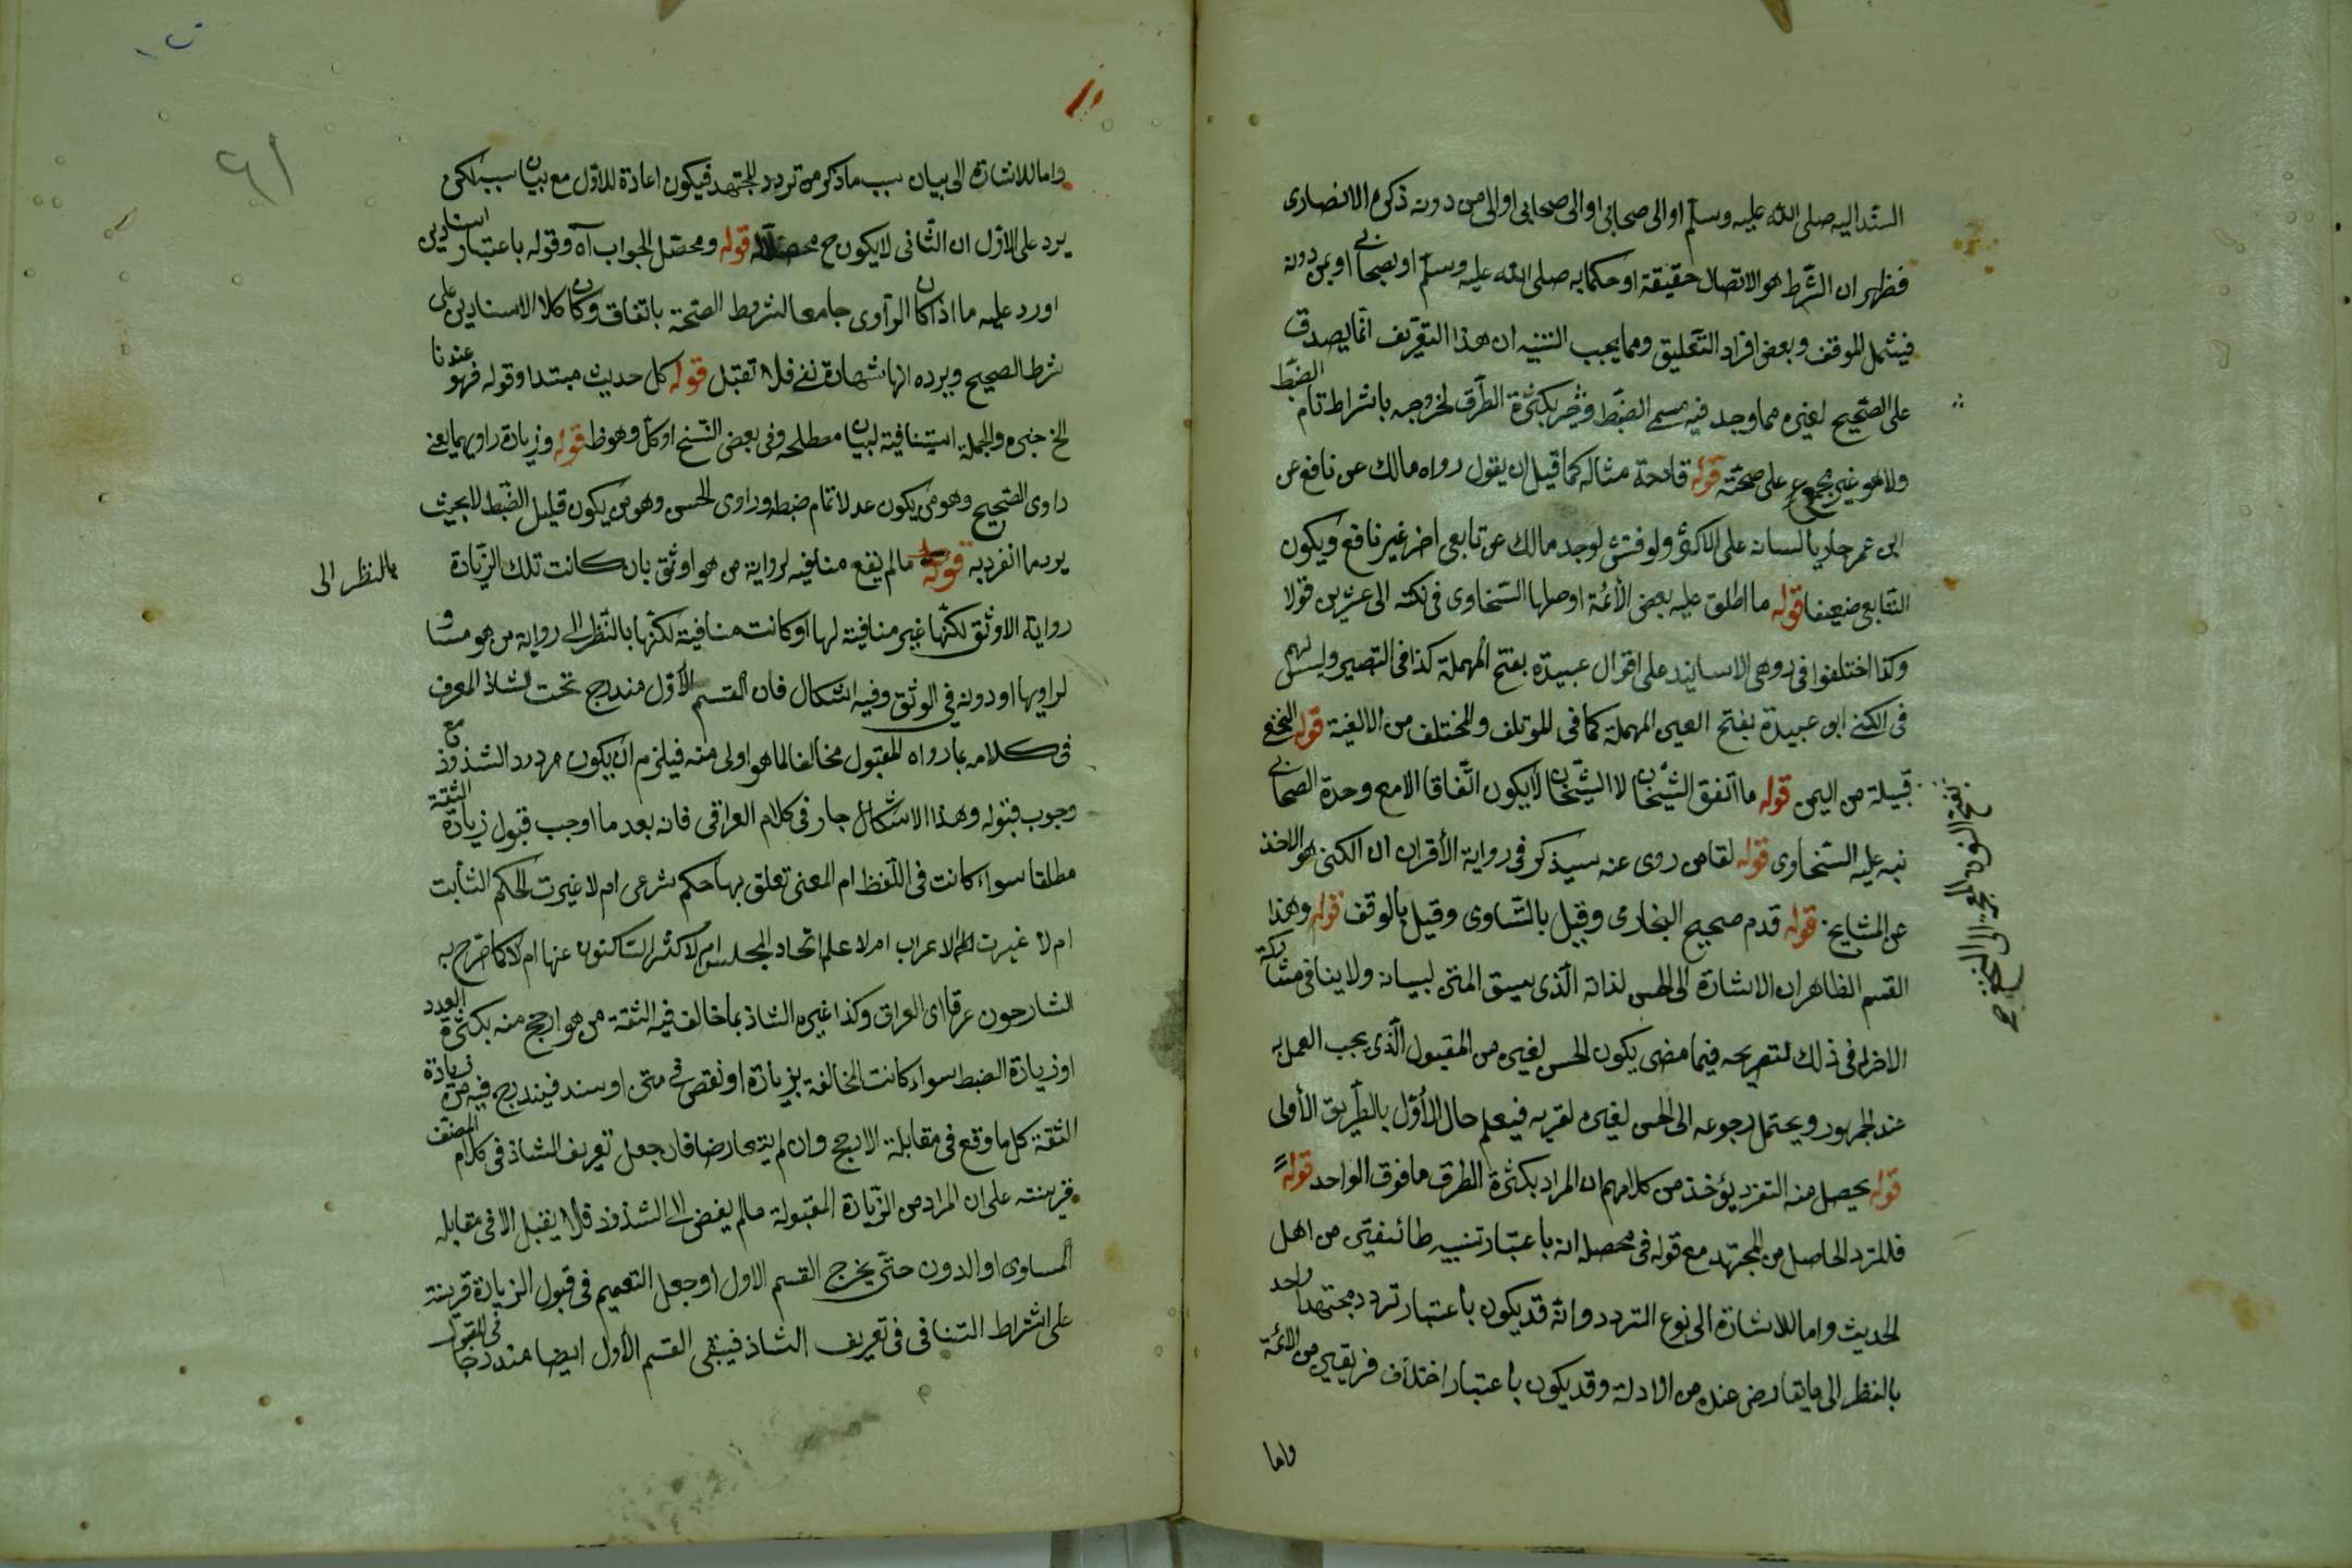 السند اليه صلى الله عليه وسلم او الى صحابي او الى صحابي او الى من دونه ذكره الانصارى
فظهر ان الشرط هو الاتصال حقيقة او حكما به صلى الله عليه وسلم او بصحابي او بمن دونه
فيشمل الموقف وبعض افراد التعليق ومما يجب التنبيه ان هذا التعريف انما يصدق
على الصحيح لغيره مما وجد فيه مسمى الضبط بكثرة الطرق لخروجه باشراط تام الضبط
ولا هو غير مجمع على صحته قوله قادحة مثاله كما قيل ان يقول رواه مالك عن نافع عن
ابن عمر جاريا لسانه على الاكثر ولو فتش لوجد مالك عن تابعى اخر غير نافع ويكون
التابعى ضعيفا قوله ما اطلق عليه بعض الأئمة اوصلها السخاوى فى نكته الى عشرين قولا
وكذا اختلفوا فى اوهى الاسانيد على اقوال عبيدة بفتح المهملة كذا فى التبصير وليس لهم
فى الكنى ابو عبيدة بفتح العين المهملة كما فى الموتلف والمختلف من الالفية قوله النخعى
قبيلة من اليمن قوله ما اتفق الشيخان لا الشيخان لا يكون اتفاقا الا مع وحدة الصحابي
نبه عليه السخاوى قوله لقا من روى عنه سيذكر فى رواية الأقران ان الكنى هو الاخذ
عن المشايخ قوله قدم صحيح البخارى وقيل بالتساوى وقيل بالوقف قوله وهذا
القسم الظاهر ان الاشارة الى الحسن لذاته الذى سيق المتن لبيانه ولا ينافى مشاركة
الاخر له فى ذلك لتصريحه فيما مضى يكون الحسن لغيره من المقبول الذى يجب العمل به
عند الجمهور ويحتمل رجوعه الى الحسن لغيره لقربه فيعلم حال الأول بالطريق الأولى
قوله يحصل منه التفرد يؤخذ من كلامهم ان المراد بكثرة الطرق ما فوق الواحد قوله
فللتردد الحاصل من المجتهد مع قوله فى محصله انه باعتبار تنبيه طائفتين من اهل
الحديث واما للاشارة الى نوع التردد وانه قد يكون باعتبار تردد مجتهد واحد
بالنظر الى ما يتعارض عنده من الادلة وقد يكون باعتبار اختلاف فريقين من الائمة
واما
بفتح النون المعجمة
واما للاشارة الى بيان سبب ما ذكر من تردد المجتهد فيكون اعادة للاول مع بيان سببه لكن
يرد على الاول ان الثانى لا يكون ح محصلا قوله ومحصل الجواب آه وقوله باعتبار اسنادين
اورد عليه ما اذا كان الراوى جامعا لشروط الصحة باتفاق وكان كلا الاسنادين على
شرط الصحيح ويرده انها شهادة نفى فلا تقبل قوله كل حديث مبتدا وقوله فهو عندنا
الخ خبره والجملة استينافية لبيان مصطلحه وفى بعض النسخ او كل وهو ظ قوله وزيادة راويهما يعنى
راوى الصحيح وهو من يكون عدلا تمام ضبطه وراوى الحسن وهو من يكون قليل الضبط لا بحيث
يرد ما انفرد به قوله ما لم يقع منافيه لرواية من هو اوثق بان كانت تلك الزيادة
بالنظر الى
رواية الاوثق لكنها غير منافية لها او كانت منافية لكنها بالنظر الى رواية من هو مساو
لراويها او دونه فى الوثق وفيه اشكال فان القسم الأول مندرج تحت الشاذ المعرف
فى كلامه بما رواه المقبول مخالفا لما هو اولى منه فيلزم ان يكون مردود الشذوذ مع
وجوب قبوله وهذا الاشكال جار فى كلام العراقى فانه بعد ما اوجب قبول زيادة الثقة
مطلقا سواء كانت فى اللفظ ام المعنى تعلق بها حكم شرعى ام لا غيرت الحكم الثابت
ام لا غيرت الاعراب ام لا علم اتحاد المجلس ام لا كثر الساكتون عنها ام لا كما صرح به
الشارحون عرف اى العراقى وكذا غيره الشاذ بما خالف فيه الثقة من هو ارجح منه بكثرة العدد
او زيادة الضبط سواء كانت المخالفة بزيادة او نقص فى متن او سند فيندرج فيه من زيادة
الثقة كل ما وقع فى مقابلة الارجح وان لم يتعارضا فان جعل تعريف الشاذ فى كلام المصنف
قرينة على ان المراد من الزيادة المقبولة ما لم يفض الى الشذوذ فلا يقبل الا فى مقابله
المساوى او الدون حتى يخرج القسم الاول او جعل التعميم فى قبول الزيادة قرينة
على اشراط التنافى فى تعريف الشاذ فيبقى القسم الأول ايضا مندرجا فى القبول